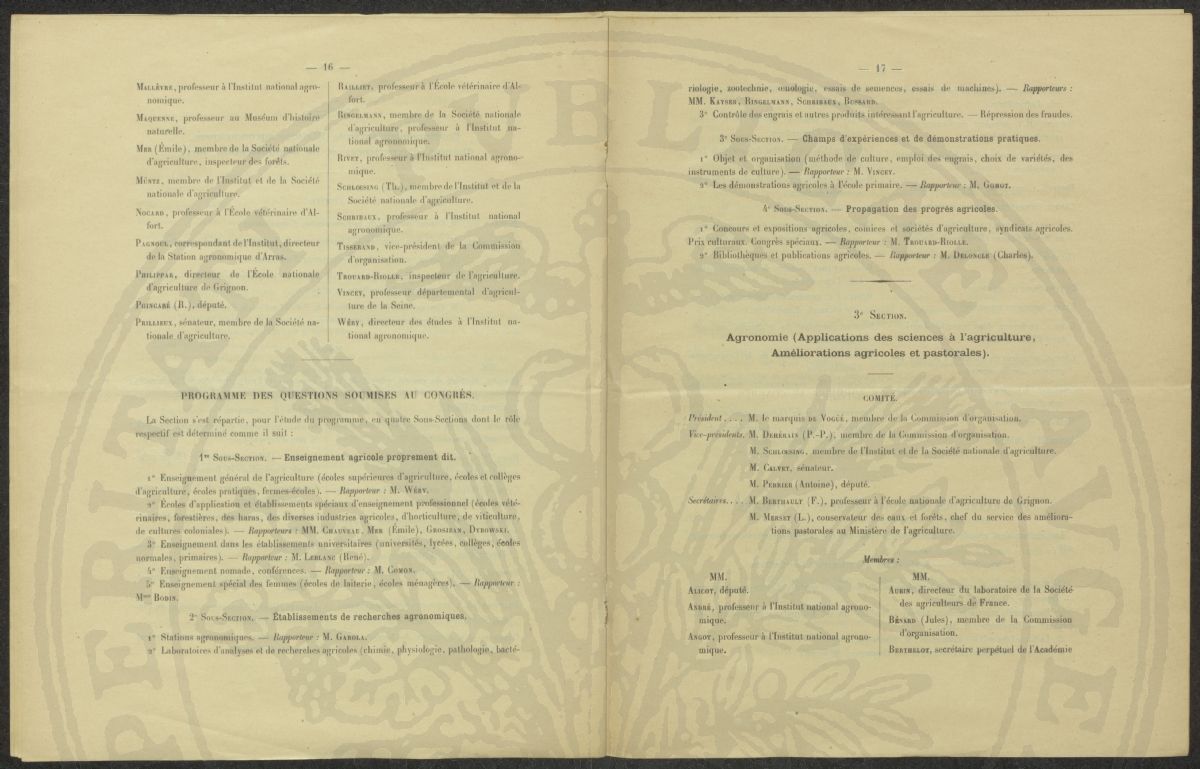 — 16 —
MALLÈVRE, professeur à l'Institut national agro-
nomique.
MAQUENNE, professeur au Muséum d'histoire
naturelle.
MER (Émile), membre de la Société nationale
d'agriculture, inspecteur des forêts.
MÜNTZ, membre de l'Institut et de la Société
nationale d'agriculture.
NOCARD, professeur à l'École vétérinaire d'Al-
fort.
PAGNOUL, correspondant de l'Institut, directeur
de la Station agronomique d'Arras.
PHILIPPAR, directeur de l'École nationale
d'agriculture de Grignon.
POINCARÉ (R.), député.
PRILLIEUX, sénateur, membre de la Société na-
tionale d'agriculture.
RAILLIET, professeur à l'École vétérinaire d'Al-
fort.
RINGELMANN, membre de la Société nationale
d'agriculture, professeur à l'Institut na-
tional agronomique.
RIVET, professeur à l'Institut national agrono-
mique.
SCHLOESING (Th.), membre de l'Institut et de la
Société nationale d'agriculture.
SCHRIBAUX, professeur à l'Institut national
agronomique.
TISSERAND, vice-président de la Commission
d'organisation.
TROUARD-RIOLLE, inspecteur de l'agriculture.
VINCEY, professeur départemental d'agricul-
ture de la Seine.
WÉRY, directeur des études à l'Institut na-
tional agronomique.
PROGRAMME DES QUESTIONS SOUMISES AU CONGRÈS.
La Section s'est répartie, pour l'étude du programme, en quatre Sous-Sections dont le rôle
respectif est déterminé comme il suit :
1re SOUS-SECTION. — Enseignement agricole proprement dit.
1° Enseignement général de l'agriculture (écoles supérieures d'agriculture, écoles et collèges
d'agriculture, écoles pratiques, fermes-écoles). — Rapporteur : M. WÉRY.
2° Écoles d'application et établissements spéciaux d'enseignement professionnel (écoles vété-
rinaires, forestières, des haras, des diverses industries agricoles, d'horticulture, de viticulture,
de cultures coloniales). — Rapporteurs : MM. CHAUVEAU, MER (Émile), GROSJEAN, DYBOWSKI.
3° Enseignement dans les établissements universitaires (universités, lycées, collèges, écoles
normales, primaires). — Rapporteur : M. LEBLANC (René).
4° Enseignement nomade, conférences. — Rapporteur : M. COMON.
5° Enseignement spécial des femmes (écoles de laiterie, écoles ménagères). — Rapporteur :
Mme BODIN.
2e SOUS-SECTION. — Établissements de recherches agronomiques.
1° Stations agronomiques. — Rapporteur : M. GAROLA.
2° Laboratoires d'analyses et de recherches agricoles (chimie, physiologie, pathologie, bacté-
— 17 —
riologie, zootechnie, œnologie, essais de semences, essais de machines). — Rapporteurs :
MM. KAYSER, RINGELMANN, SCHRIBAUX, BUSSARD.
3° Contrôle des engrais et autres produits intéressant l'agriculture. — Répression des fraudes.
3e SOUS-SECTION. — Champs d'expériences et de démonstrations pratiques.
1° Objet et organisation (méthode de culture, emploi des engrais, choix de variétés, des
instruments de culture). — Rapporteur : M. VINCEY.
2° Les démonstrations agricoles à l'école primaire. — Rapporteur : M. GOBOT.
4e SOUS-SECTION. — Propagation des progrès agricoles.
1° Concours et expositions agricoles, comices et sociétés d'agriculture, syndicats agricoles.
Prix culturaux. Congrès spéciaux. — Rapporteur : M. TROUARD-RIOLLE.
2° Bibliothèques et publications agricoles. — Rapporteur : M. DELONCLE (Charles).
3e SECTION.
Agronomie (Applications des sciences à l'agriculture,
Améliorations agricoles et pastorales).
COMITÉ.
Président.... M. le marquis DE VOGÜÉ, membre de la Commission d'organisation.
Vice-présidents. M. DEHÉRAIN (P.-P.), membre de la Commission d'organisation.
M. SCHLOESING, membre de l'Institut et de la Société nationale d'agriculture.
M. CALVET, sénateur.
M. PERRIER (Antoine), député.
Secrétaires.... M. BERTHAULT (F.), professeur à l'école nationale d'agriculture de Grignon.
M. MERSEY (L.), conservateur des eaux et forêts, chef du service des améliora-
tions pastorales au Ministère de l'agriculture.
Membres :
MM.
ALICOT, député.
ANDRÉ, professeur à l'Institut national agrono-
mique.
ANGOT, professeur à l'Institut national agrono-
mique.
MM.
AUBIN, directeur du laboratoire de la Société
des agriculteurs de France.
BÉNARD (Jules), membre de la Commission
d'organisation.
BERTHELOT, secrétaire perpétuel de l'Académie